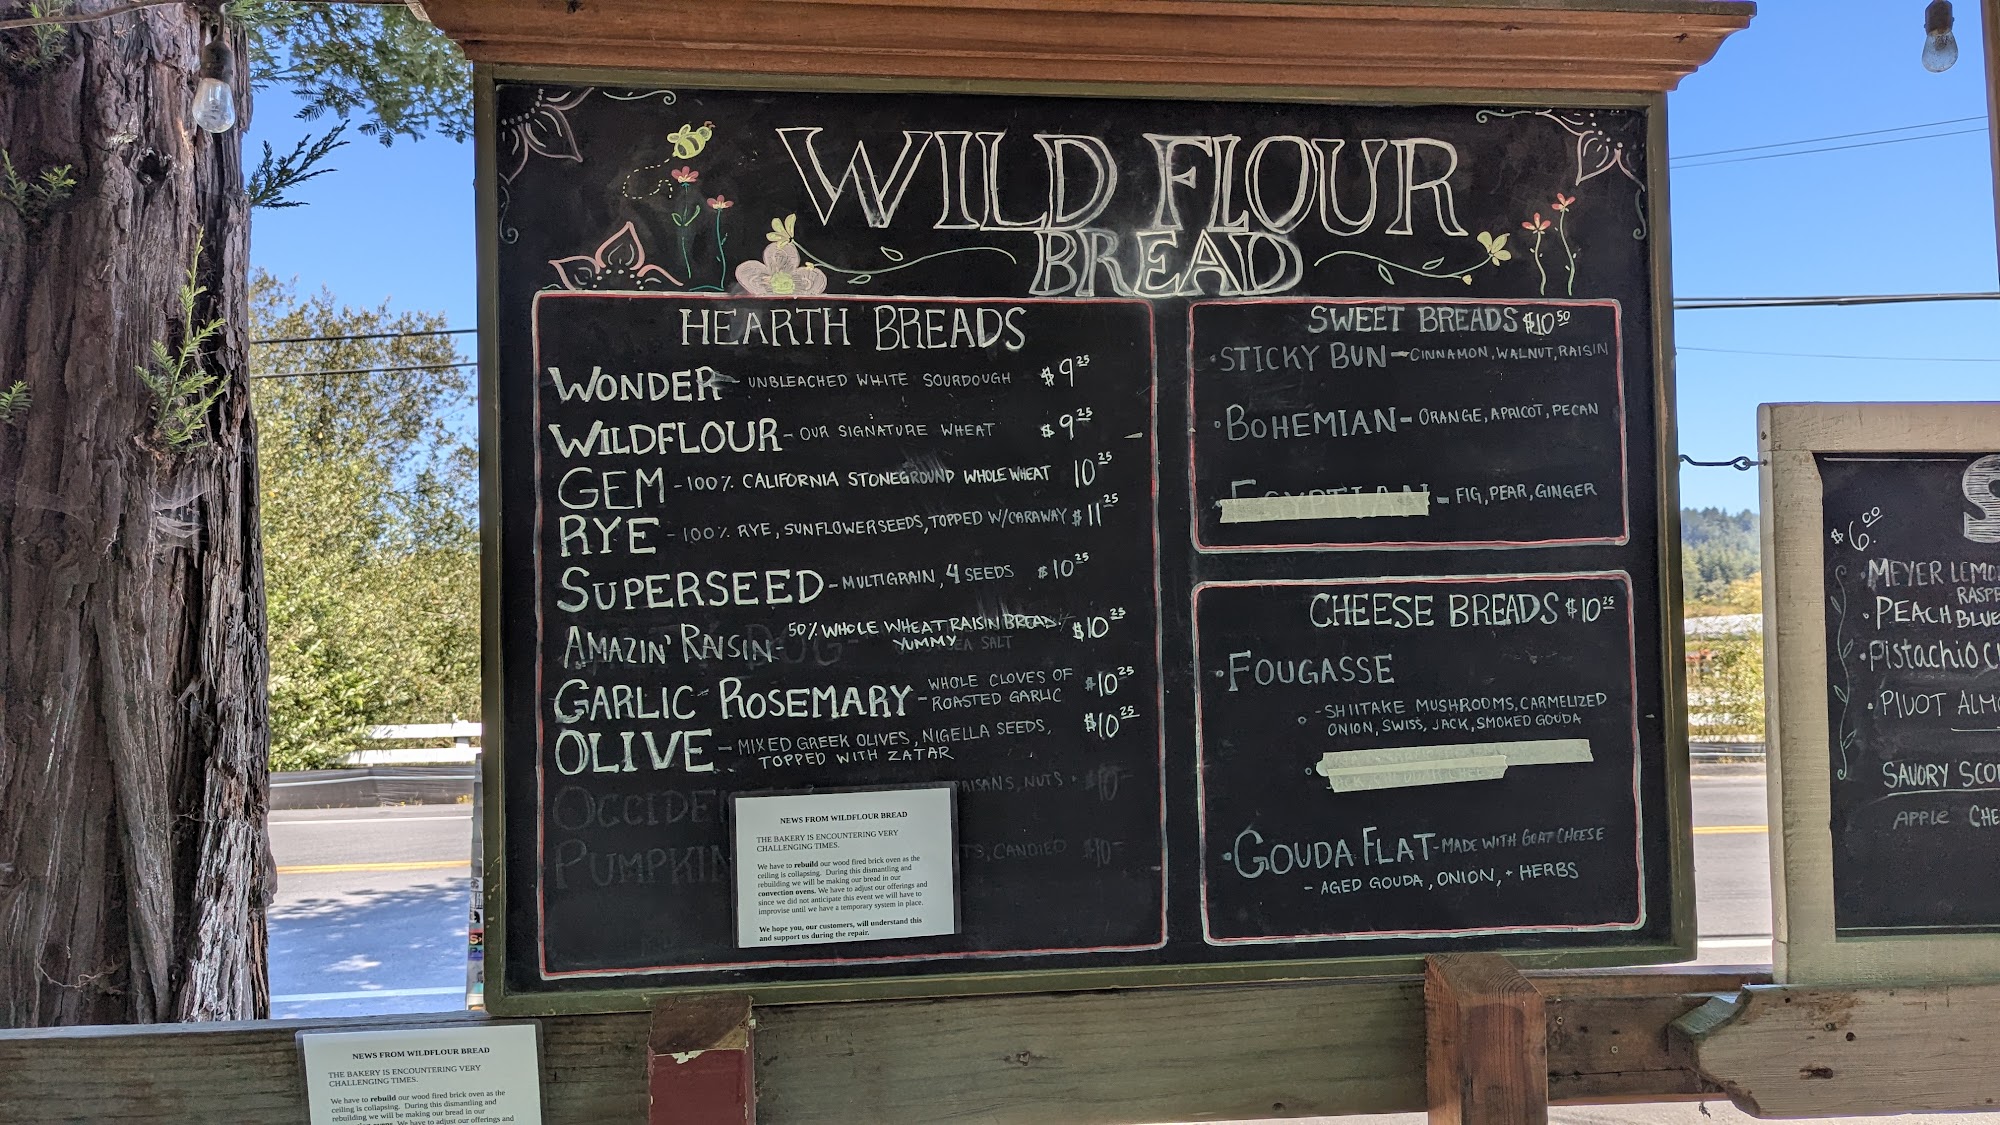 WILD FLOUR
BREAD
HEARTH BREADS
WONDER - UNBLEACHED WHITE SOURDOUGH $9 25
WILDFLOUR - OUR SIGNATURE WHEAT $9 25
GEM - 100% CALIFORNIA STONEGROUND WHOLE WHEAT 10 25
RYE - 100% RYE, SUNFLOWER SEEDS, TOPPED W/CARAWAY $11 25
SUPERSEED - MULTIGRAIN, 4 SEEDS $10 25
AMAZIN' RAISIN - 50% WHOLE WHEAT RAISIN BREAD $10 25
YUMMY SEA SALT
GARLIC ROSEMARY - WHOLE CLOVES OF $10 25
ROASTED GARLIC
OLIVE - MIXED GREEK OLIVES, NIGELLA SEEDS, $10 25
TOPPED WITH ZATAR
RAISANS, NUTS $10-
PUMPKIN CANDIED $10-
NEWS FROM WILDFLOUR BREAD
THE BAKERY IS ENCOUNTERING VERY
CHALLENGING TIMES.
We have to rebuild our wood fired brick oven as the
ceiling is collapsing. During this dismantling and
rebuilding we will be making our bread in our
convection ovens. We have to adjust our offerings and
since we did not anticipate this event we will have to
improvise until we have a temporary system in place.
We hope you, our customers, will understand this
and support us during the repair.
SWEET BREADS $10 50
• STICKY BUN - CINNAMON, WALNUT, RAISIN
• BOHEMIAN - ORANGE, APRICOT, PECAN
• EGYPTIAN - FIG, PEAR, GINGER
CHEESE BREADS $10 25
• FOUGASSE
- SHIITAKE MUSHROOMS, CARMELIZED
ONION, SWISS, JACK, SMOKED GOUDA
• GOUDA FLAT - MADE WITH GOAT CHEESE
- AGED GOUDA, ONION, + HERBS
$6.00
• MEYER LEMO
RASPB
• PEACH BLUE
• PISTACHIO C
• PIVOT ALMO
SAVORY SCO
APPLE CHE
NEWS FROM WILDFLOUR BREAD
THE BAKERY IS ENCOUNTERING VERY
CHALLENGING TIMES.
We have to rebuild our wood fired brick oven as the
ceiling is collapsing. During this dismantling and
rebuilding we will be making our bread in our
We have to adjust our offerings and